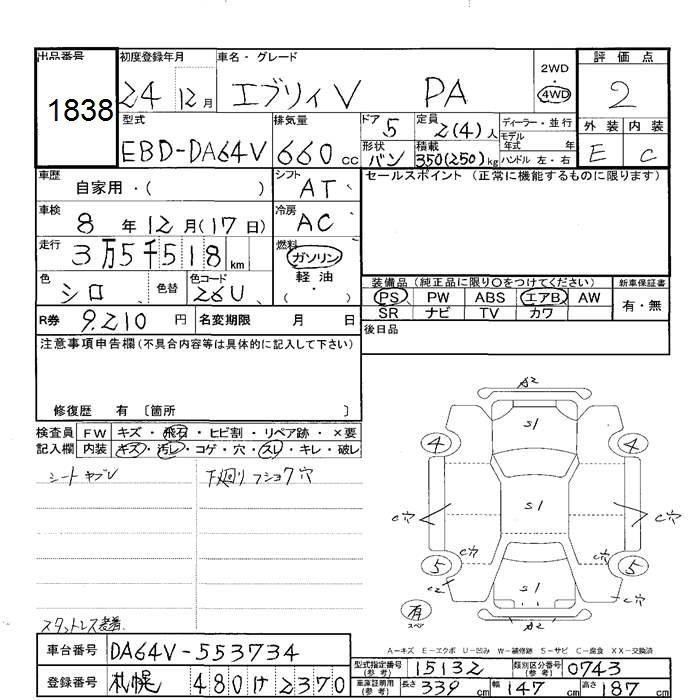 出品番号
1838
初度登録年月
24 12月
車名・グレード
エブリィV PA
2WD・4WD
評価点
2
外装 内装
E C
型式
EBD-DA64V
排気量
660cc
ドア
5
形状
バン
定員
2(4)人
積載
350(250)kg
ディーラー・並行
モデル年式 年
ハンドル 左・右
車歴
自家用・( )
シフト
AT
車検
8年12月(17日)
冷房
AC
走行
3万5千518km
燃料
ガソリン
軽油
・( )
色
シロ
色替
色コード
26U
R券 9,210円
名変期限 月 日
セールスポイント(正常に機能するものに限ります)
装備品(純正品に限り○をつけてください)
PS PW ABS エアB AW
SR ナビ TV カワ
新車保証書
有・無
後日品
注意事項申告欄(不具合内容等は具体的に記入して下さい)
修復歴 有〔箇所 〕
検査員記入欄
FW キズ・飛石・ヒビ割・リペア跡・×要
内装 キズ・汚レ・コゲ・穴・スレ・キレ・破レ
シートヤブレ
下廻りフショク穴
スタットレス装着
A2
S1
4 4
S1
C穴 C穴
C穴 C穴
5 5
C2
S1
有
スペ
A2
A-キズ E-エクボ U-凹み W-補修跡 S-サビ C-腐食 XX-交換済
車台番号
DA64V-553734
登録番号
札幌 480け2370
型式指定番号(参考)
15132
類別区分番号(参考)
0743
車庫証明用(参考)
長さ 339cm
幅 147cm
高さ 187cm